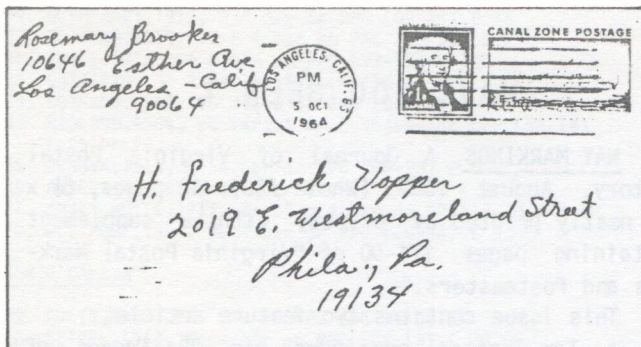 Rosemary Brooker
10646 Esther Ave
Los Angeles - Calif
90064
LOS ANGELES, CALIF.
PM
5 OCT
1964
CANAL ZONE POSTAGE
H. Frederick Vopper
2019 E. Westmoreland Street
Phila., Pa.
19134